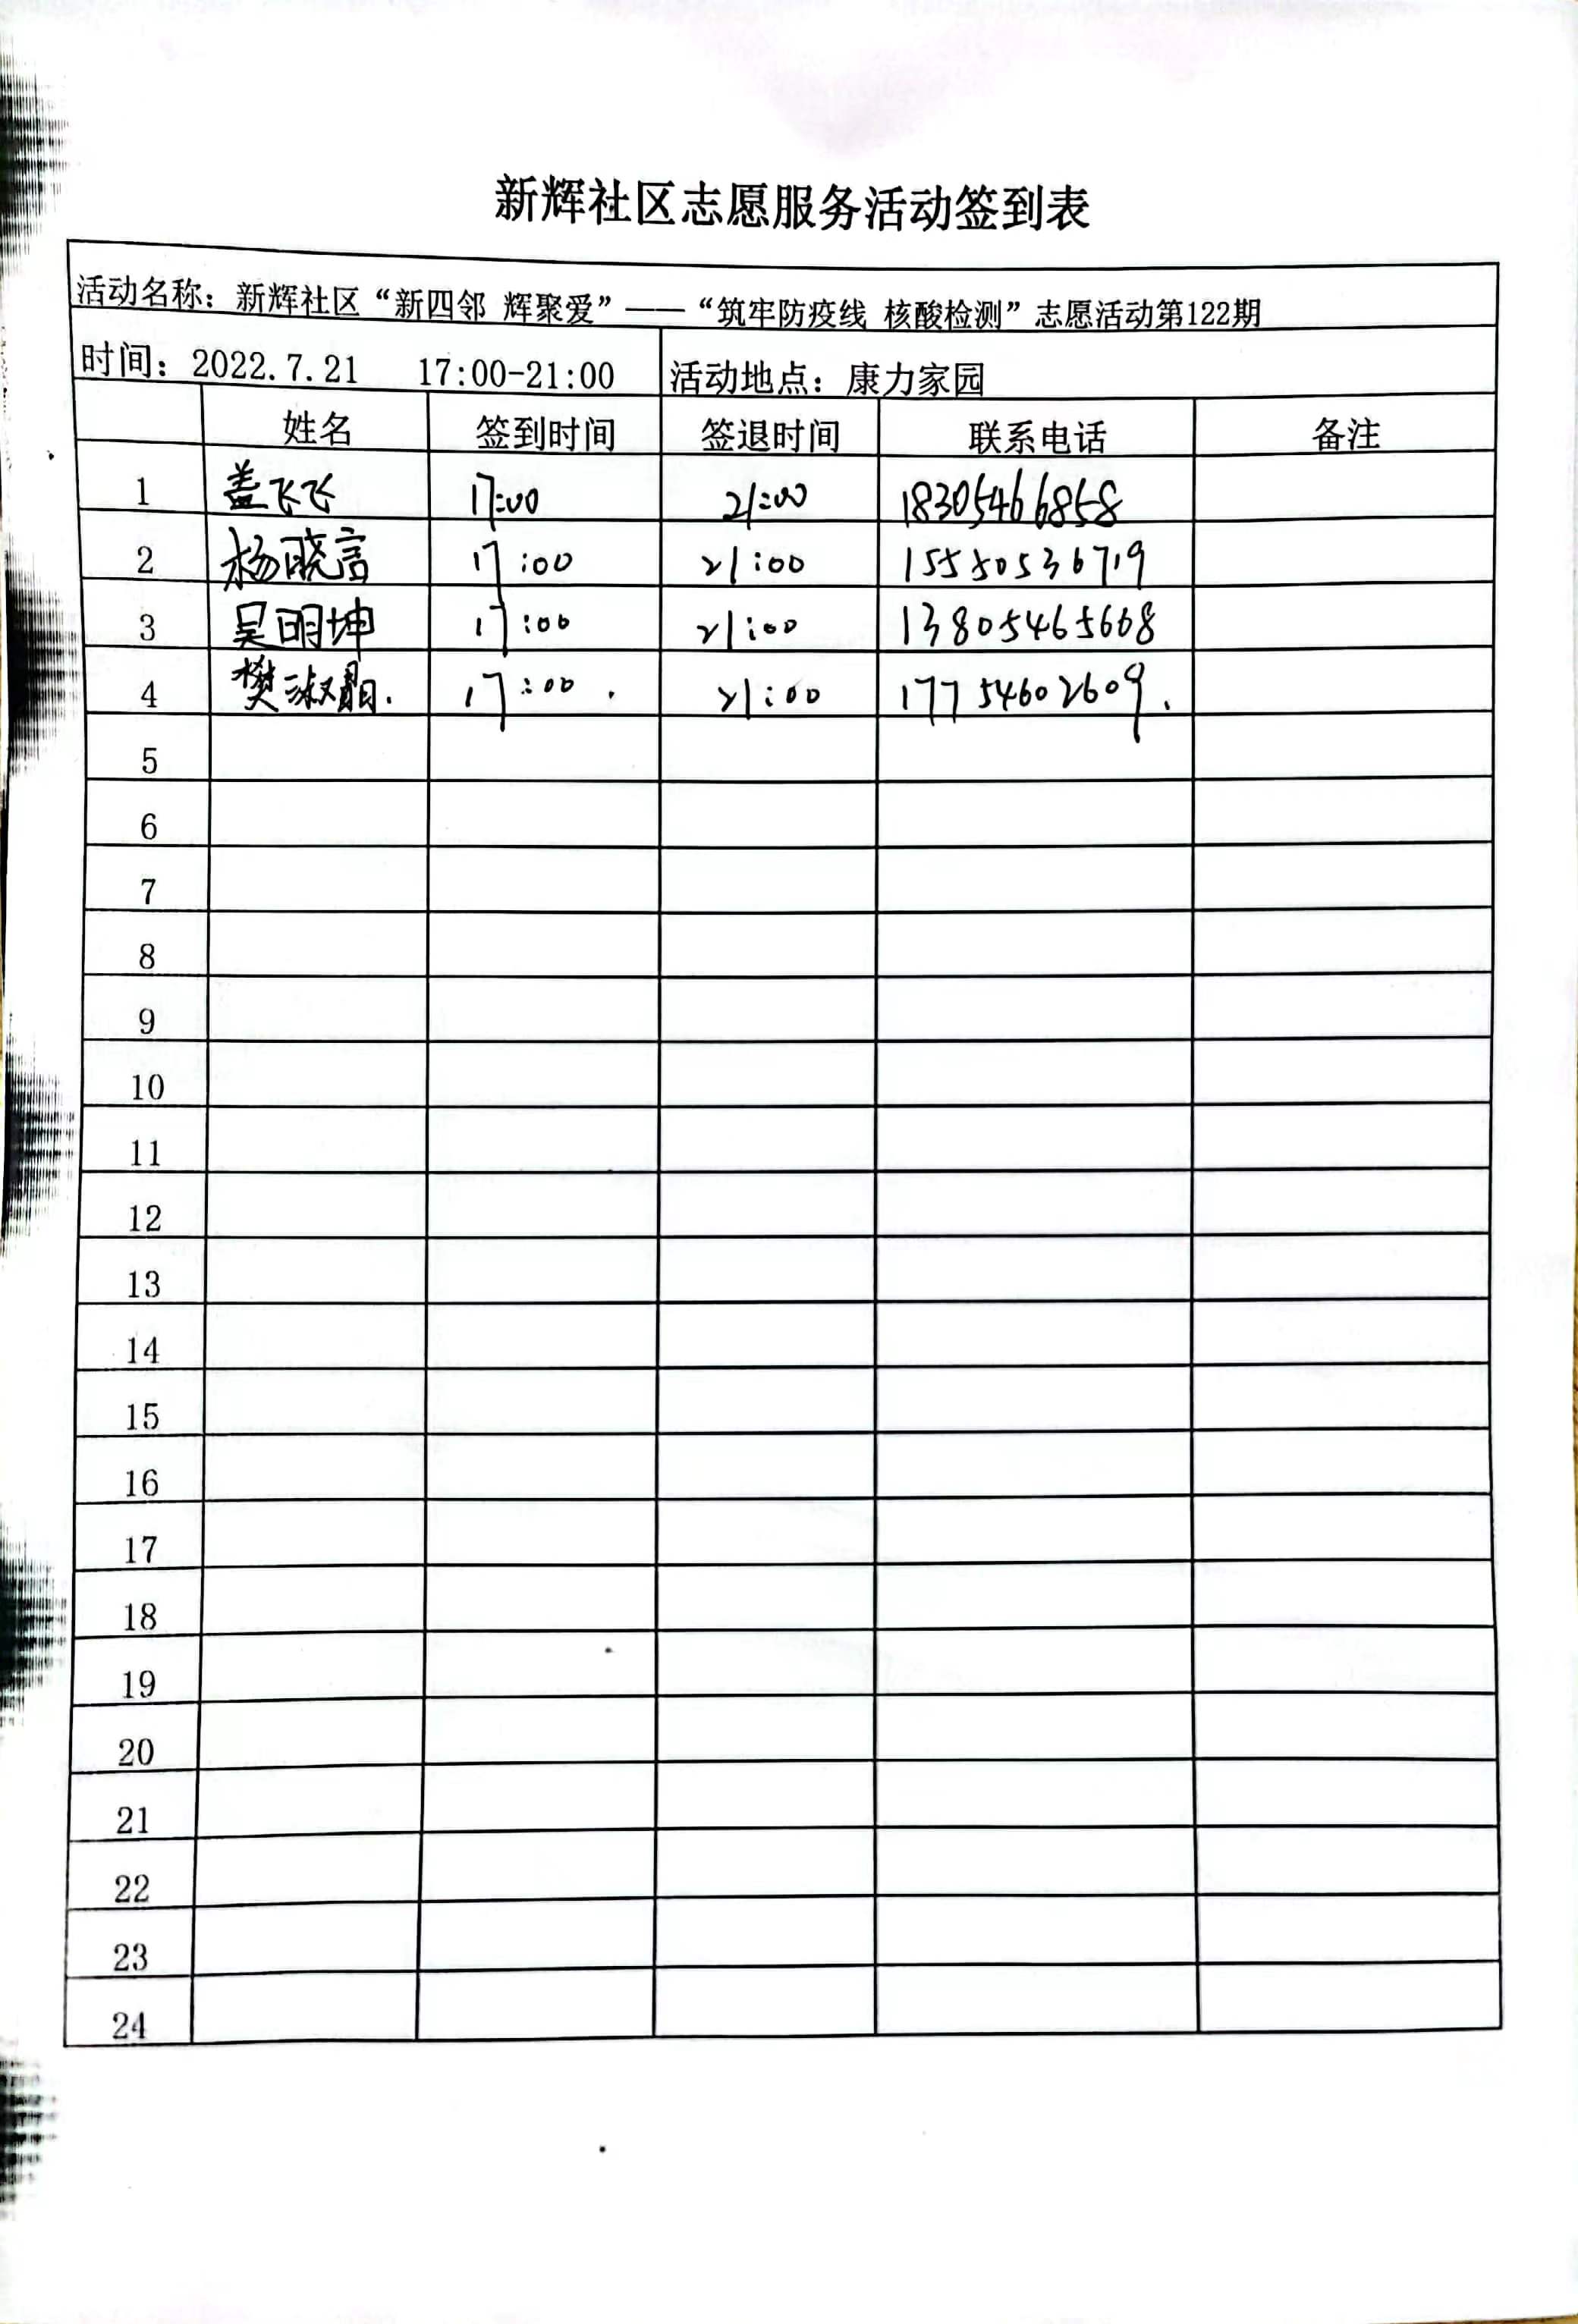 新辉社区志愿服务活动签到表
活动名称：新辉社区“新四邻 辉聚爱”——“筑牢防疫线 核酸检测”志愿活动第122期
时间：2022.7.21 17:00-21:00 活动地点：康力家园
姓名 签到时间 签退时间 联系电话 备注
1 盖飞飞 17:00 21:00 18305466858
2 杨晓言 17:00 21:00 15550536719
3 吴明坤 17:00 21:00 13805465668
4 樊淑 17:00 21:00 17754602609
5
6
7
8
9
10
11
12
13
14
15
16
17
18
19
20
21
22
23
24